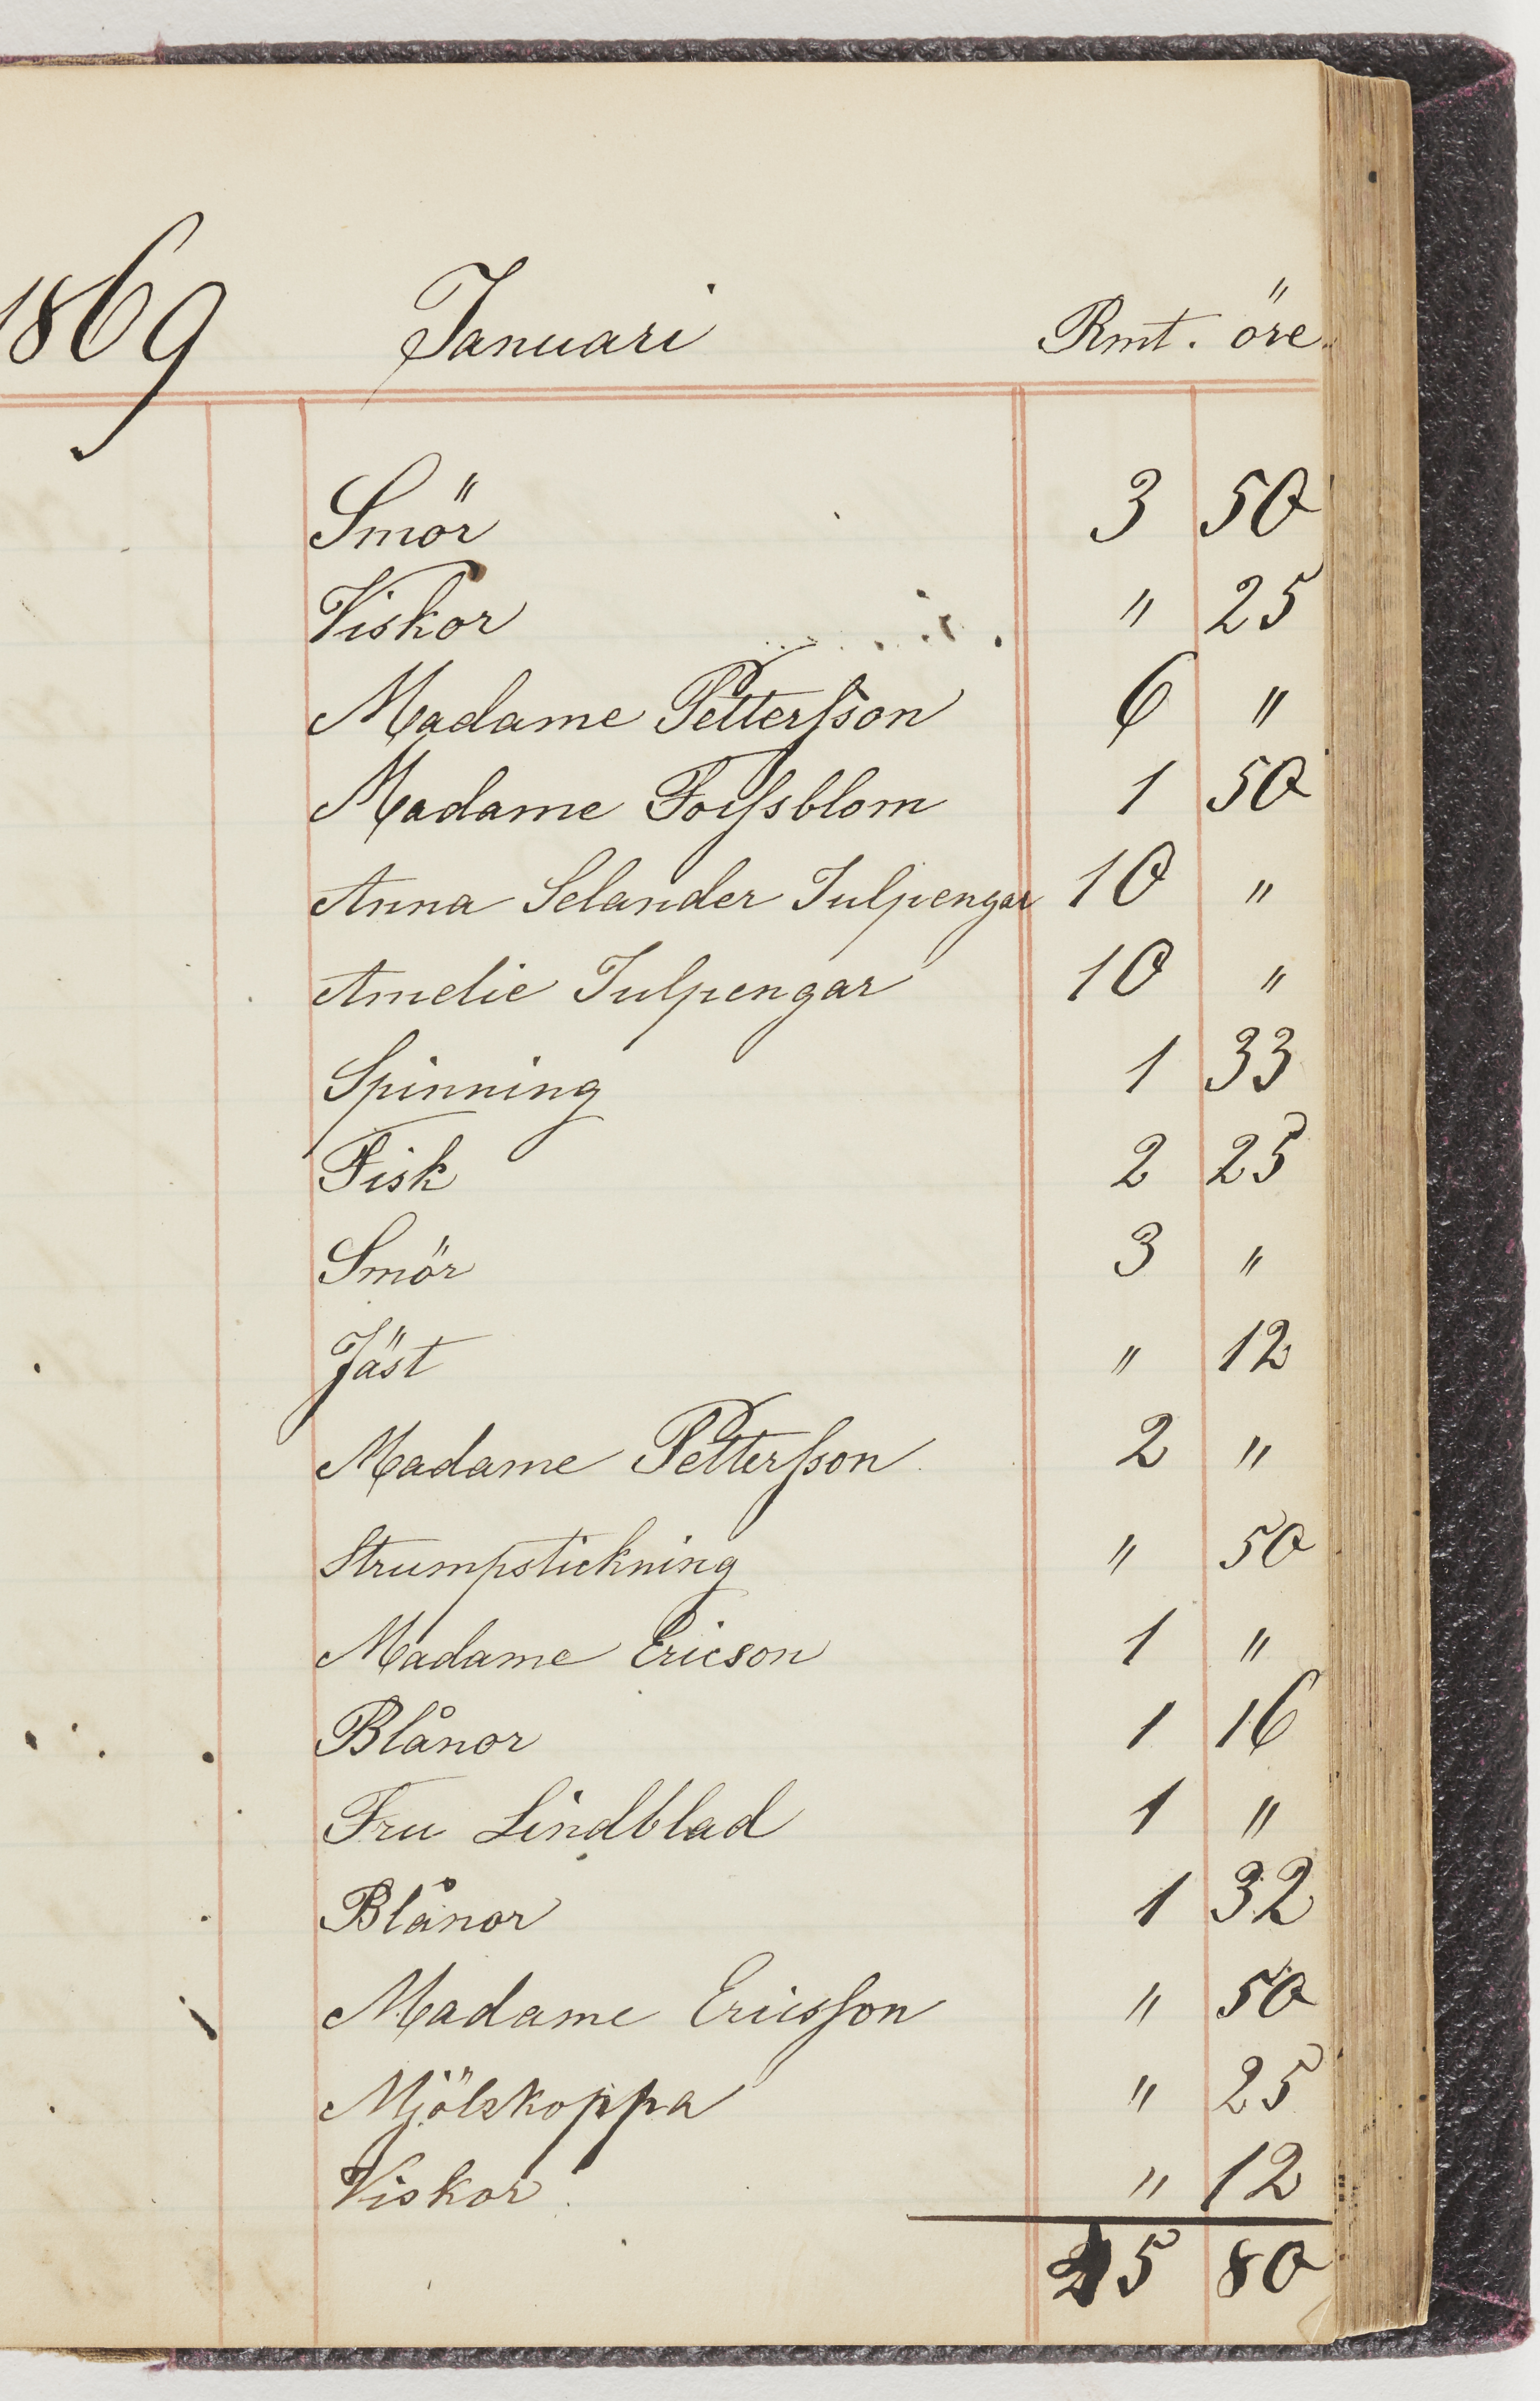 1869 Januari Rmt. öre.
Smör 3 50
Viskor " 25
Madame Pettersson 6 "
Madame Forssblom 1 50
Anna Selander Julpengar 10 "
Amelie Julpengar 10 "
Spinning 1 33
Fisk 2 25
Smör 3 "
Jäst " 12
Madame Pettersson 2 "
Strumpstickning " 50
Madame Ericson 1 "
Blånor 1 16
Fru Lindblad 1 "
Blånor 1 32
Madame Ericsson " 50
Mjölskoppa " 25
Viskor " 12
45 80